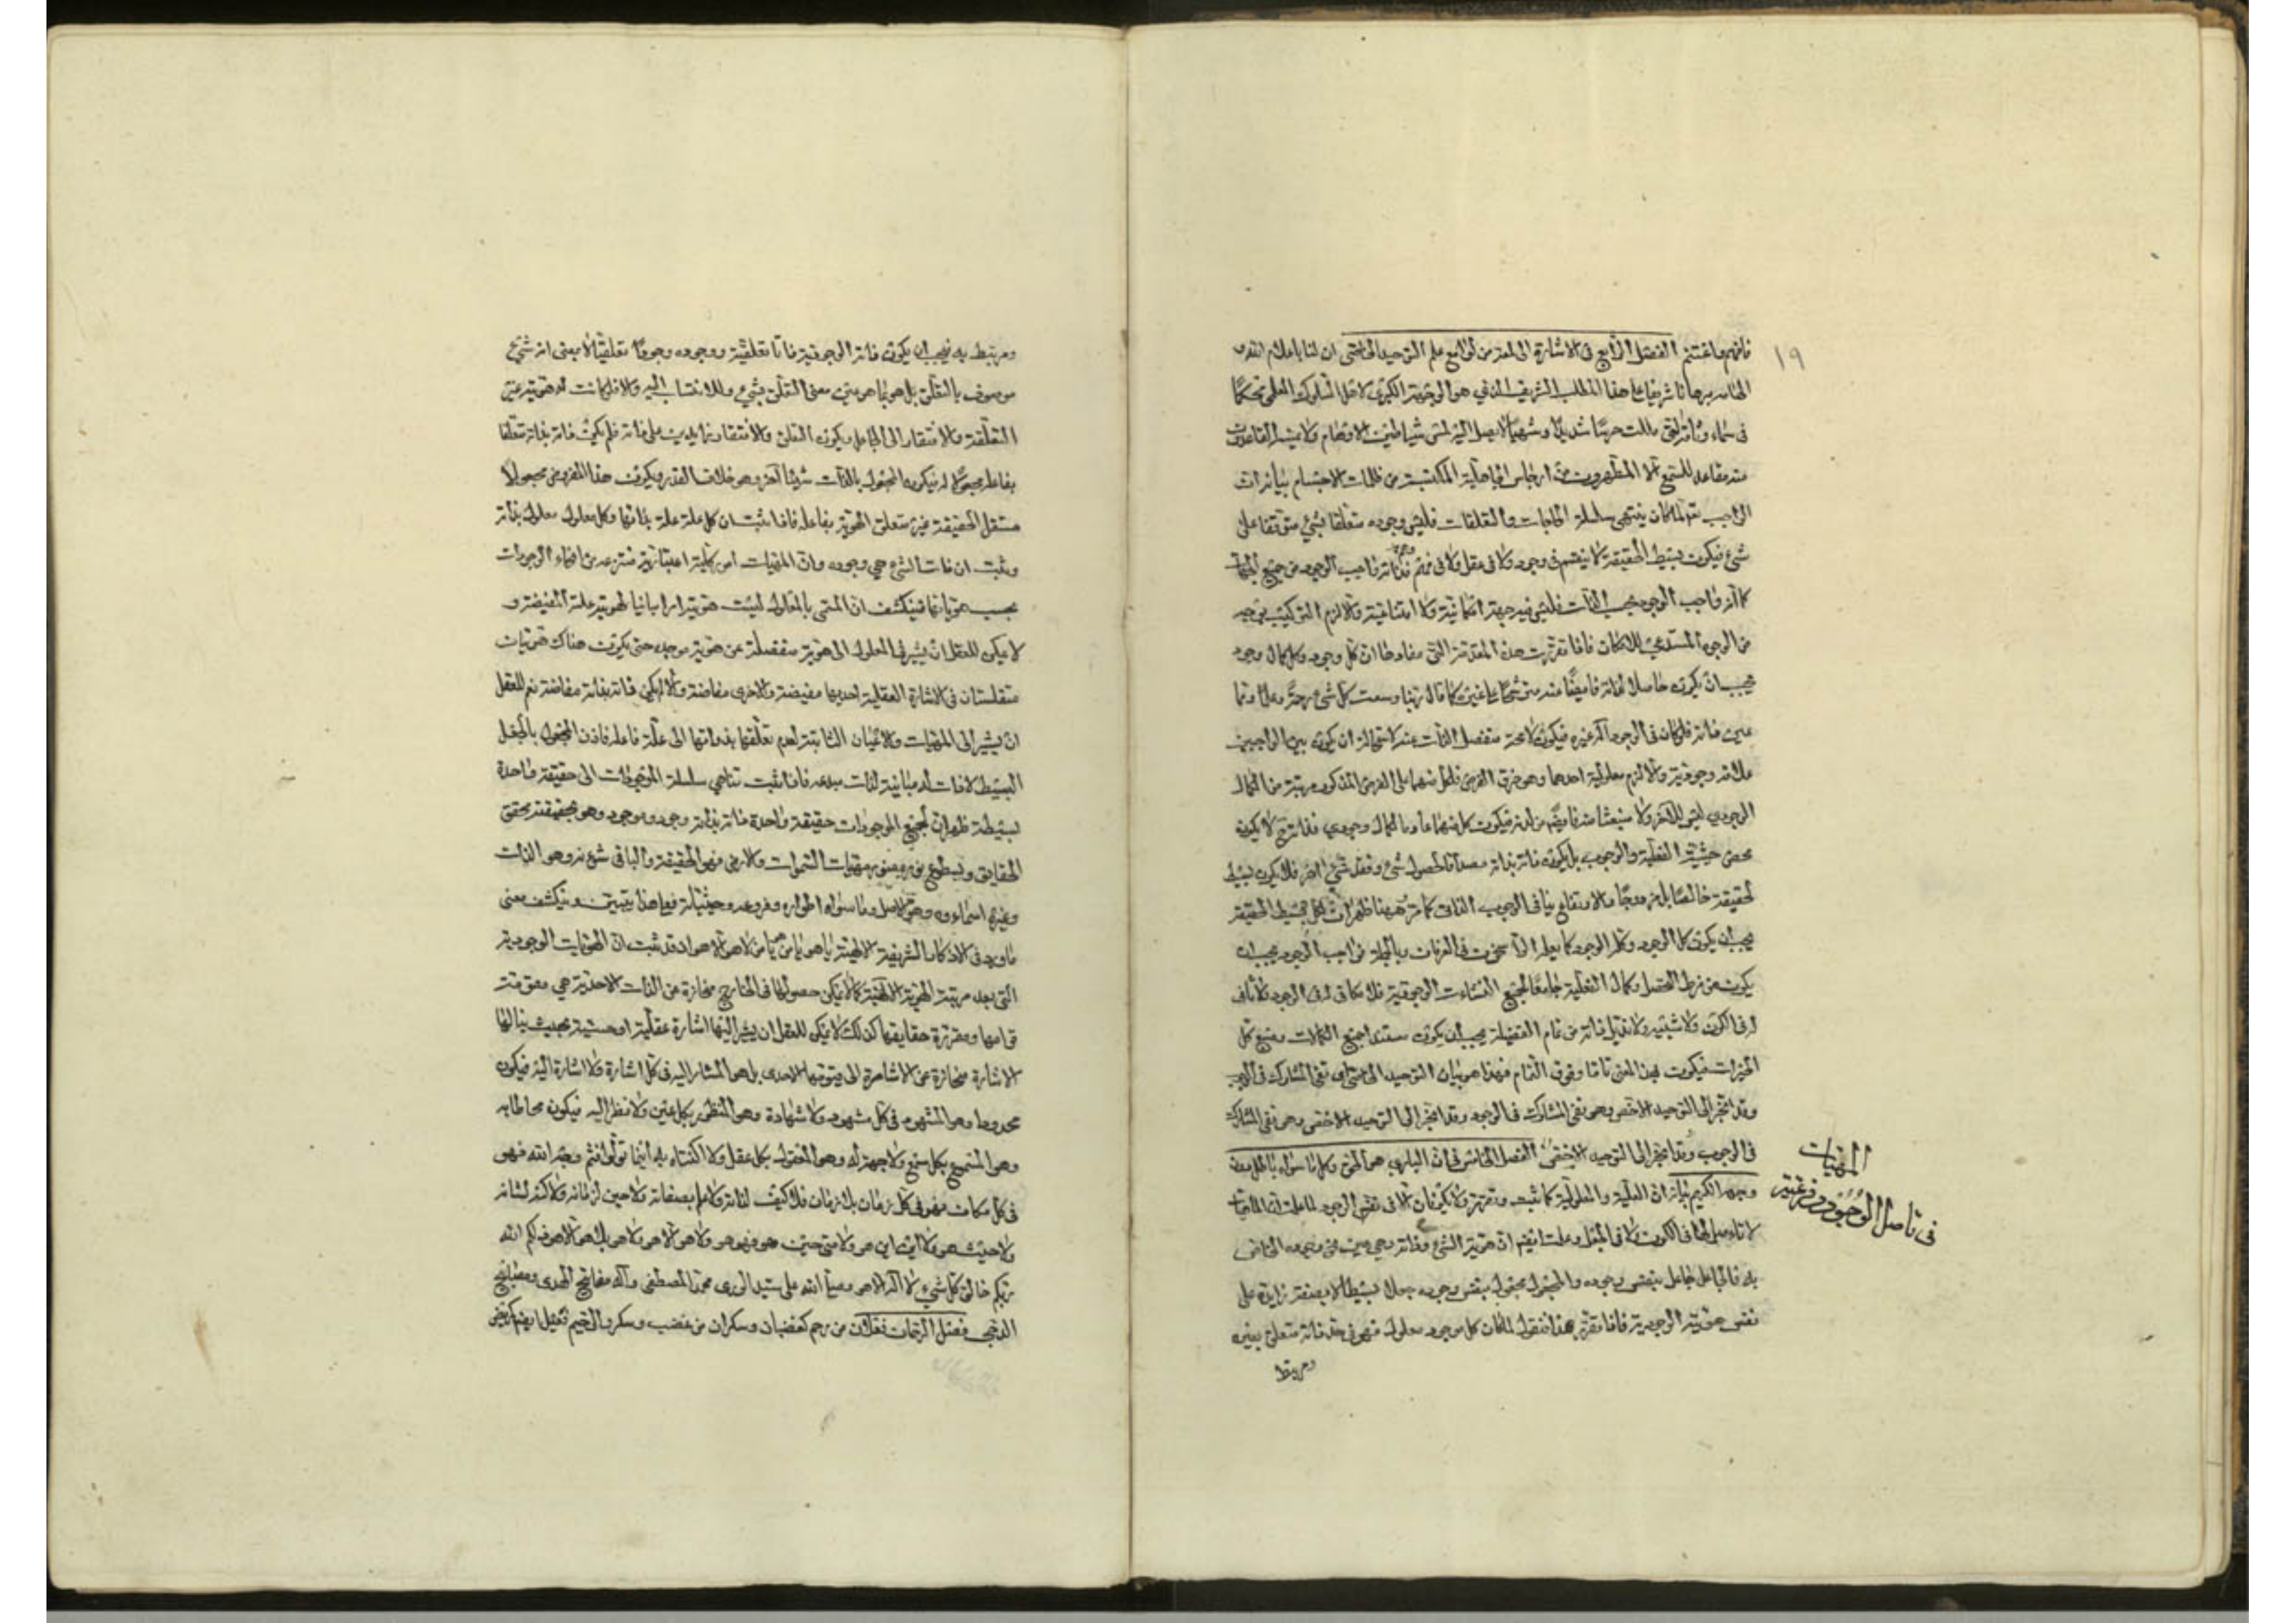 ١٩
فافهم واغتنم الفصل الرابع في الاشارة الى لمعة من لوامع علم التوحيد الخاصي ان لنا باعلام الله
الهامه برهانا شريفا على هذا المطلب الشريف الذي هو الوجهة الكبرى لاهل السلوك العلمي محكما
في سماء وثاقته التي ملئت حرسا شديدا وشهبا لا يصل اليه لمس شياطين الاوهام ولا يمس القاعدين
منه مقاعد للسمع الا المطهرون من ارجاس الجاهلية المكتسبة من ظلمات الاجسام بيانه ان
الواجب لما كان ينتهي سلسلة الحاجات والتعلقات فليس وجوده متعلقا بشيء متوقفا على
شيء فيكون بسيط الحقيقة لا ينقسم في وجود ولا في عقل ولا في وهم فذاته واجب الوجود من جميع الجهات
كما انه واجب الوجود بحسب الذات فليس فيه جهة امكانية ولا امتناعية والا لزم التركيب بوجه
من الوجوه المستدعي للامكان فاذا تقررت هذه المقدمة التي مفادها ان كل وجود وكل كمال وجود
يجب ان يكون حاصلا لذاته فايضا عنه مترشحا على غيره كما قال ربنا وسعت كل شيء رحمة وعلما وهما
عين ذاته فلو كان في الوجود اله غيره فيكون لا محة منفصل الذات عنه لاستحالة ان يكون بين الواجبين
علاقة وجودية والا لزم معلولية احدهما وهو خرق الفرض فلكل منهما على الفرض المذكور مرتبة من الكمال
الوجودي ليس للآخر ولا منبعثا منه فايضا من لدنه فيكون كل منهما عادما لكمال وجودي فذاته ح لا يكون
محض حيثية الفعلية والوجوب بل يكون ذاته بذاته مصداقا لحصول شيء وفقد شيء آخر فلا يكون بسيط
الحقيقة خالصا بل مزدوجا والازدواج ينافي الوجوب الذاتي كما مر فمن ههنا ظهر ان كل بسيط الحقيقة
يجب ان يكون كل الوجود وكله الوجود كما يعلمه الراسخون في العرفان وبالجملة فواجب الوجود يجب ان
يكون من فرط التحصل وكمال الفعلية جامعا لجميع النشاءت الوجودية فلا مكافي له في الوجود ولا ثاني
له في الكون ولا شبيه ولا ند بل ذاته من تمام الفضيلة يجب ان يكون مستند جميع الكمالات ومنبع كل
الخيرات فيكون بهذا المعنى تاما وفوق التمام فهذا هو بيان التوحيد الخاصي اي نفي المشارك في الوجوب
وقد انجر الى التوحيد الاخصي وهو نفي المشارك في الوجود وقد انجر الى التوحيد الاخصي وهو نفي المشارك
في الوجوب وقد انجر الى التوحيد الاخصي الفصل الخامس في ان الباري هو الحق وكل ما سواه باطل دون
وجهه الكريم بيانه ان العلية والمعلولية كما ثبت وتقرر لا يكونان الا في نفس الوجود لما علمت ان الماهيات
لا تاصل لها في الكون ولا في الجعل وعلمت ايضا ان هوية الشيء وذاته وهي عين نحو وجوده الخاص
به فالجاعل جاعل بنفس وجوده والمجعول مجعول بنفس وجوده جعلا بسيطا لا بصفة زايدة على
نفس هويته الوجودية فاذا تقرر هذا فنقول لما كان كل موجود معلول فهو في حد ذاته متعلق بغيره
ومرتبط
المهيات
في تاصل الوجود
ومرتبط به فيجب ان يكون ذاته الوجودية ذاتا تعلقية ووجوده وجودا تعلقيا لا بمعنى انه شيء
موصوف بالتعلق بل هو بما هو عين معنى التعلق بشيء والانتساب اليه والا فلو كانت له هوية غير
التعلقة والافتقار الى الجاعل ويكون التعلق والافتقار زايدين على ذاته فلم يكن ذاته بذاته متعلقا
بفاعله مجعولا له فيكون المجعول بالذات شيئا آخر وهو خلاف القدر ويكون هذا المفروض مجعولا
مستقل الحقيقة غير متعلق الهوية بفاعله فاذا ثبت ان كل علة علة بذاتها وكل معلول معلول بذاته
وثبت ان ذات الشيء هي وجوده وان المهيات امور كلية اعتبارية منتزعة من انحاء الوجودات
بحسب هوياتها فينكشف ان المسمى بالمعلول ليست هويته امرا مباينا لهوية علته المفيضة و
لا يمكن للعقل ان يشير في المعلول الى هوية منفصلة عن هوية موجده حتى يكون هناك هويتان
مستقلتان في الاشارة العقلية احديهما مفيضة والاخرى مفاضة والا لم يكن ذاته بذاته مفاضة نعم للعقل
ان يشير الى المهيات والاعيان الثابتة لعدم تعلقها بذواتها الى علة فاعله فاذن المجعول بالجعل
البسيط لا ذات له مباينة لذات مبدعه فاذا ثبت تناهي سلسلة الموجودات الى حقيقة واحدة
بسيطة ظهر ان لجميع الموجودات حقيقة واحدة ذاته بذاته وجود وموجود وهو بحقيقته محقق
الحقايق وبسطوع نوره منور مهيات السموات والارض فهو الحقيقة والباقي شئونه وهو الذات
وغيره اسماءوه وهو الاصل وما سواه اطواره وفروعه وحيثياته فبهذا يتبين وينكشف معنى
ما ورد في الاذكار الشريفة الالهية يا هو يا من هو يا من لا هو الا هو اذ قد ثبت ان الهويات الوجودية
التي بعد مرتبة الهوية الالهية كما لا يمكن حصولها في الخارج منحازة عن الذات الاحدية هي مقومة
قوامها ومقررة حقايقها كذلك لا يمكن للعقل ان يشير اليها اشارة عقلية او حسية بحيث ينالها
الاشارة منحازة عن الاشارة الى قيومها الاحدي بل هو المشار اليه في كل اشارة ولا اشارة اليه فيكون
محدودا وهو المشهود في كل مشهود ولا شهادة وهو المنظور بكل عين ولا نظر اليه فيكون محاطا به
وهو المسموع بكل سمع ولا جهة له وهو المعقول بكل عقل ولا اكتناه به اينما تولوا فثم وجه الله فهو
في كل مكان وهو في كل زمان بلا زمان فلا كيف لذاته ولا لم بصفاته ولا حين لزمانه ولا كنه لشانه
ولا حيث هو ولا اين اين هو ولا متى حين هو فهو هو ولا هو الا هو ولا هو بلا هو الا هو ذلكم الله
ربكم خالق كل شيء لا اله الا هو وصلى الله على سيد الورى محمد المصطفى وآله مفاتيح الهدى ومصابيح
الدجى فصل الرحمان فعلان من رحم كغضبان وسكران من غضب وسكر والرحيم فعيل ايضا كمريض